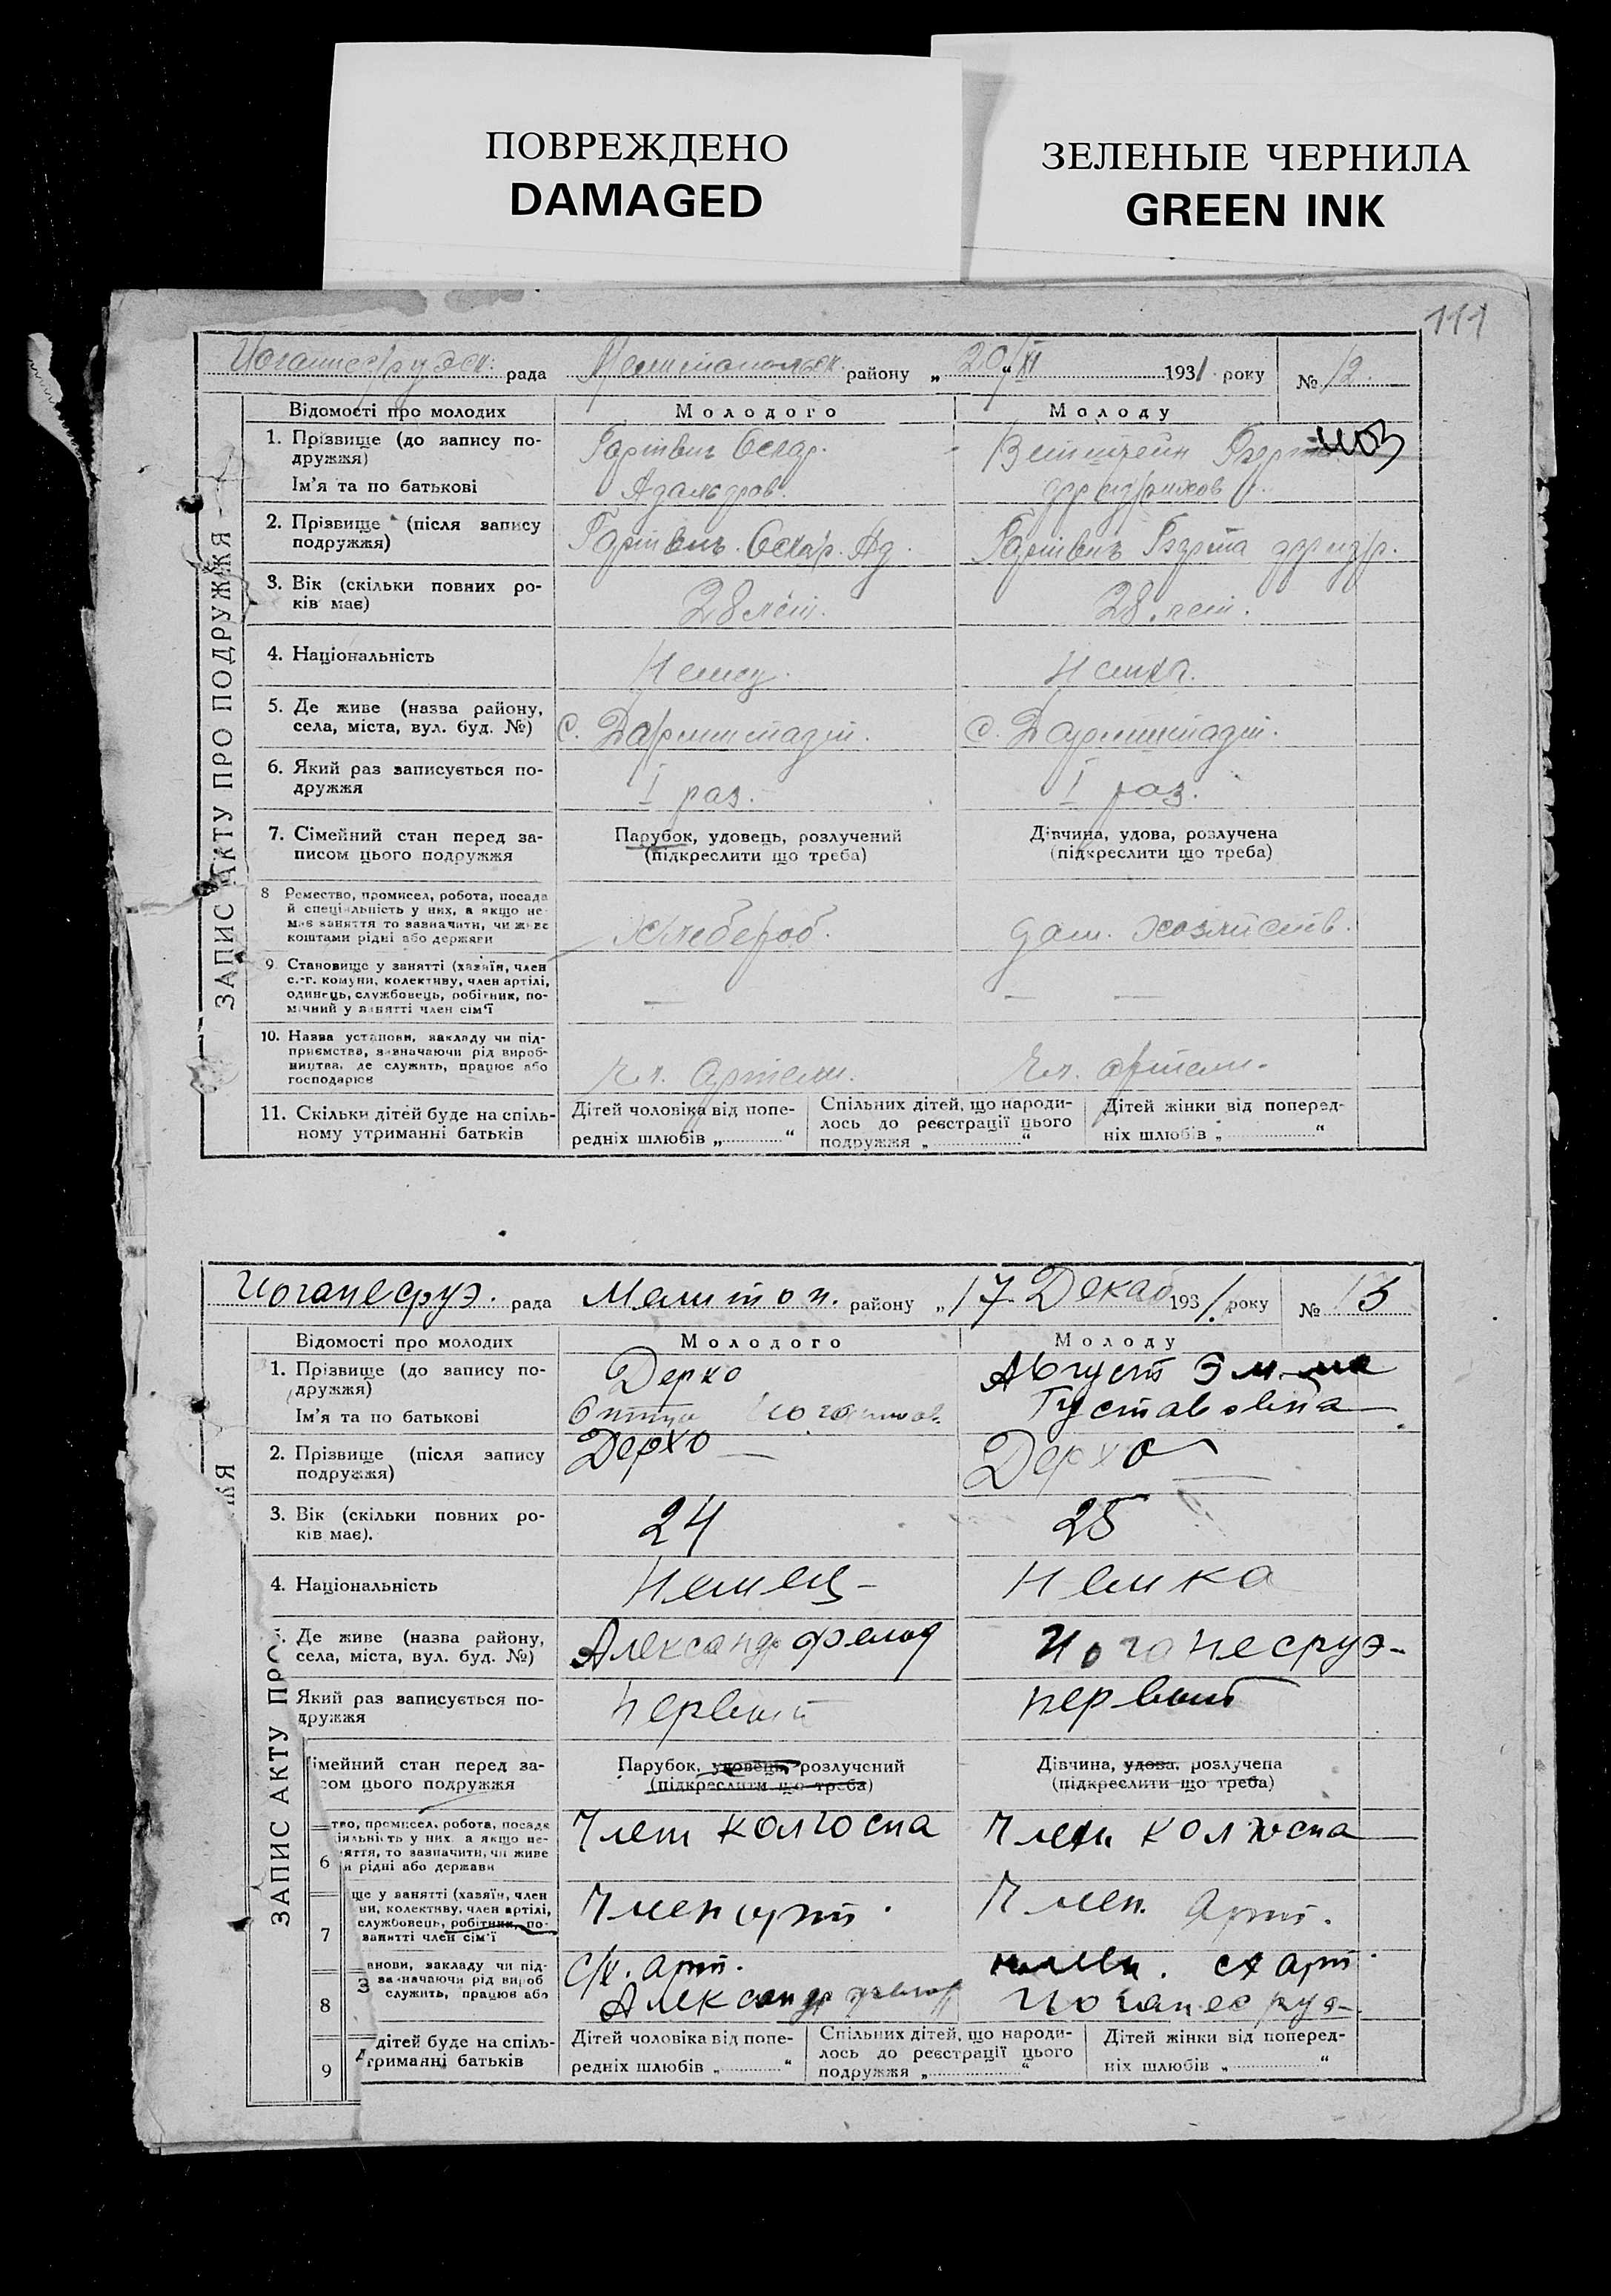 ПОВРЕЖДЕНО
DAMAGED
ЗЕЛЕНЫЕ ЧЕРНИЛА
GREEN INK
111
ЗАПИС АКТУ ПРО ПОДРУЖЖЯ
рада района району „20“ XI 1931 року № 12
Відомості про молодих Молодого Молоду
1. Прізвище (до запису по-
дружжя)
Гартвиг Оскар.
Ім'я та по батькові
2. Прізвище (після запису
подружжя)
Гартвиг. Оскар. Ад. Гартвиг Берта фридр.
3. Вік (скільки повних ро-
ків має)
28 лет. 28 лет.
4. Національність
Немец. Немка.
5. Де живе (назва району,
села, міста, вул. буд. №)
С. Дармштадт. С. Дармштадт.
6. Який раз записується по-
дружжя
I раз. I раз.
7. Сімейний стан перед за-
писом цього подружжя
Парубок, удовець, розлучений
(підкреслити що треба)
Дівчина, удова, розлучена
(підкреслити що треба)
8 Ремество, промисел, робота, посада
й спеціальність у них, а якщо не
має заняття то зазначити, чи живе
коштами рідні або держави
Хлебероб. дом. хозяйств.
9. Становище у занятті (хазяїн, член
с.-г. комуни, колективу, член артілі,
одинець, службовець, робітник, по-
мічний у занятті член сім'ї
10. Назва установи, закладу чи під-
приємства, зазначаючи рід вироб-
ництва, де служить, працює або
господарює
Чл. артели. Чл. артели.
11. Скільки дітей буде на спіль-
ному утриманні батьків
Дітей чоловіка від попе-
редніх шлюбів „ “
Спільних дітей, що народи-
лось до реєстрації цього
подружжя „ “
Дітей жінки від поперед-
ніх шлюбів „ “
Иоганесруэ. рада Мелитоп. району „17 Декаб 1931. року № 13
Відомості про молодих Молодого Молоду
1. Прізвище (до запису по-
дружжя)
Ім'я та по батькові
Дерхо
Август Эмма
Густавовна
2. Прізвище (після запису
подружжя)
Дерхо Дерхо
3. Вік (скільки повних ро-
ків має).
24 25
4. Національність
Немец Немка
Де живе (назва району,
села, міста, вул. буд. №)
Александрфельд Иоганесруэ
Який раз записується по-
дружжя
первый первый
імейний стан перед за-
сом цього подружжя
Парубок, удовець, розлучений
(підкреслити що треба)
Дівчина, удова, розлучена
(підкреслити що треба)
тво, промисел, робота, посада
іяльність у них, а якщо не-
яття, то зазначити, чи живе
и рідні або держави
Член колгоспа Член колгоспа
ще у занятті (хазяїн, член
ни, колективу, член артілі,
службовець, робітник, по-
занятті член сім'ї
Член арт. Член. арт.
анови, закладу чи під-
зазначаючи рід вироб
служить, працює або
с/х. арт.
Александрфельд
член. сх арт.
Иоганесруэ
дітей буде на спіль-
триманні батьків
Дітей чоловіка від попе-
редніх шлюбів „ “
Спільних дітей, що народи-
лось до реєстрації цього
подружжя „ “
Дітей жінки від поперед-
ніх шлюбів „ “
ЗАПИС АКТУ ПРО
6
7
8
9